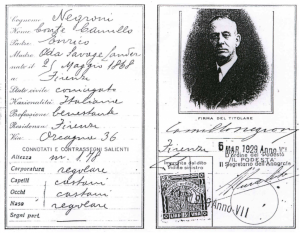 Cognome Negroni
Nome Conte Camillo
Padre Enrico
Madre Ada Savage Landor
nato il 25 Maggio 1868
a Firenze
Stato civile coniugato
Nazionalità Italiana
Professione Benestante
Residenza Firenze
Via 36
CONNOTATI E CONTRASSEGNI SALIENTI
Altezza m. 1.78
Corporatura regolare
Capelli castani
Occhi castani
Naso regolare
Segni part.
FIRMA DEL TITOLARE
Camillo Negroni
Firenze 5 MAR 1929 Anno VII
D'ordine del Podestà
IL PODESTÀ
Il Segretario dell'Anagrafe
Anno VII